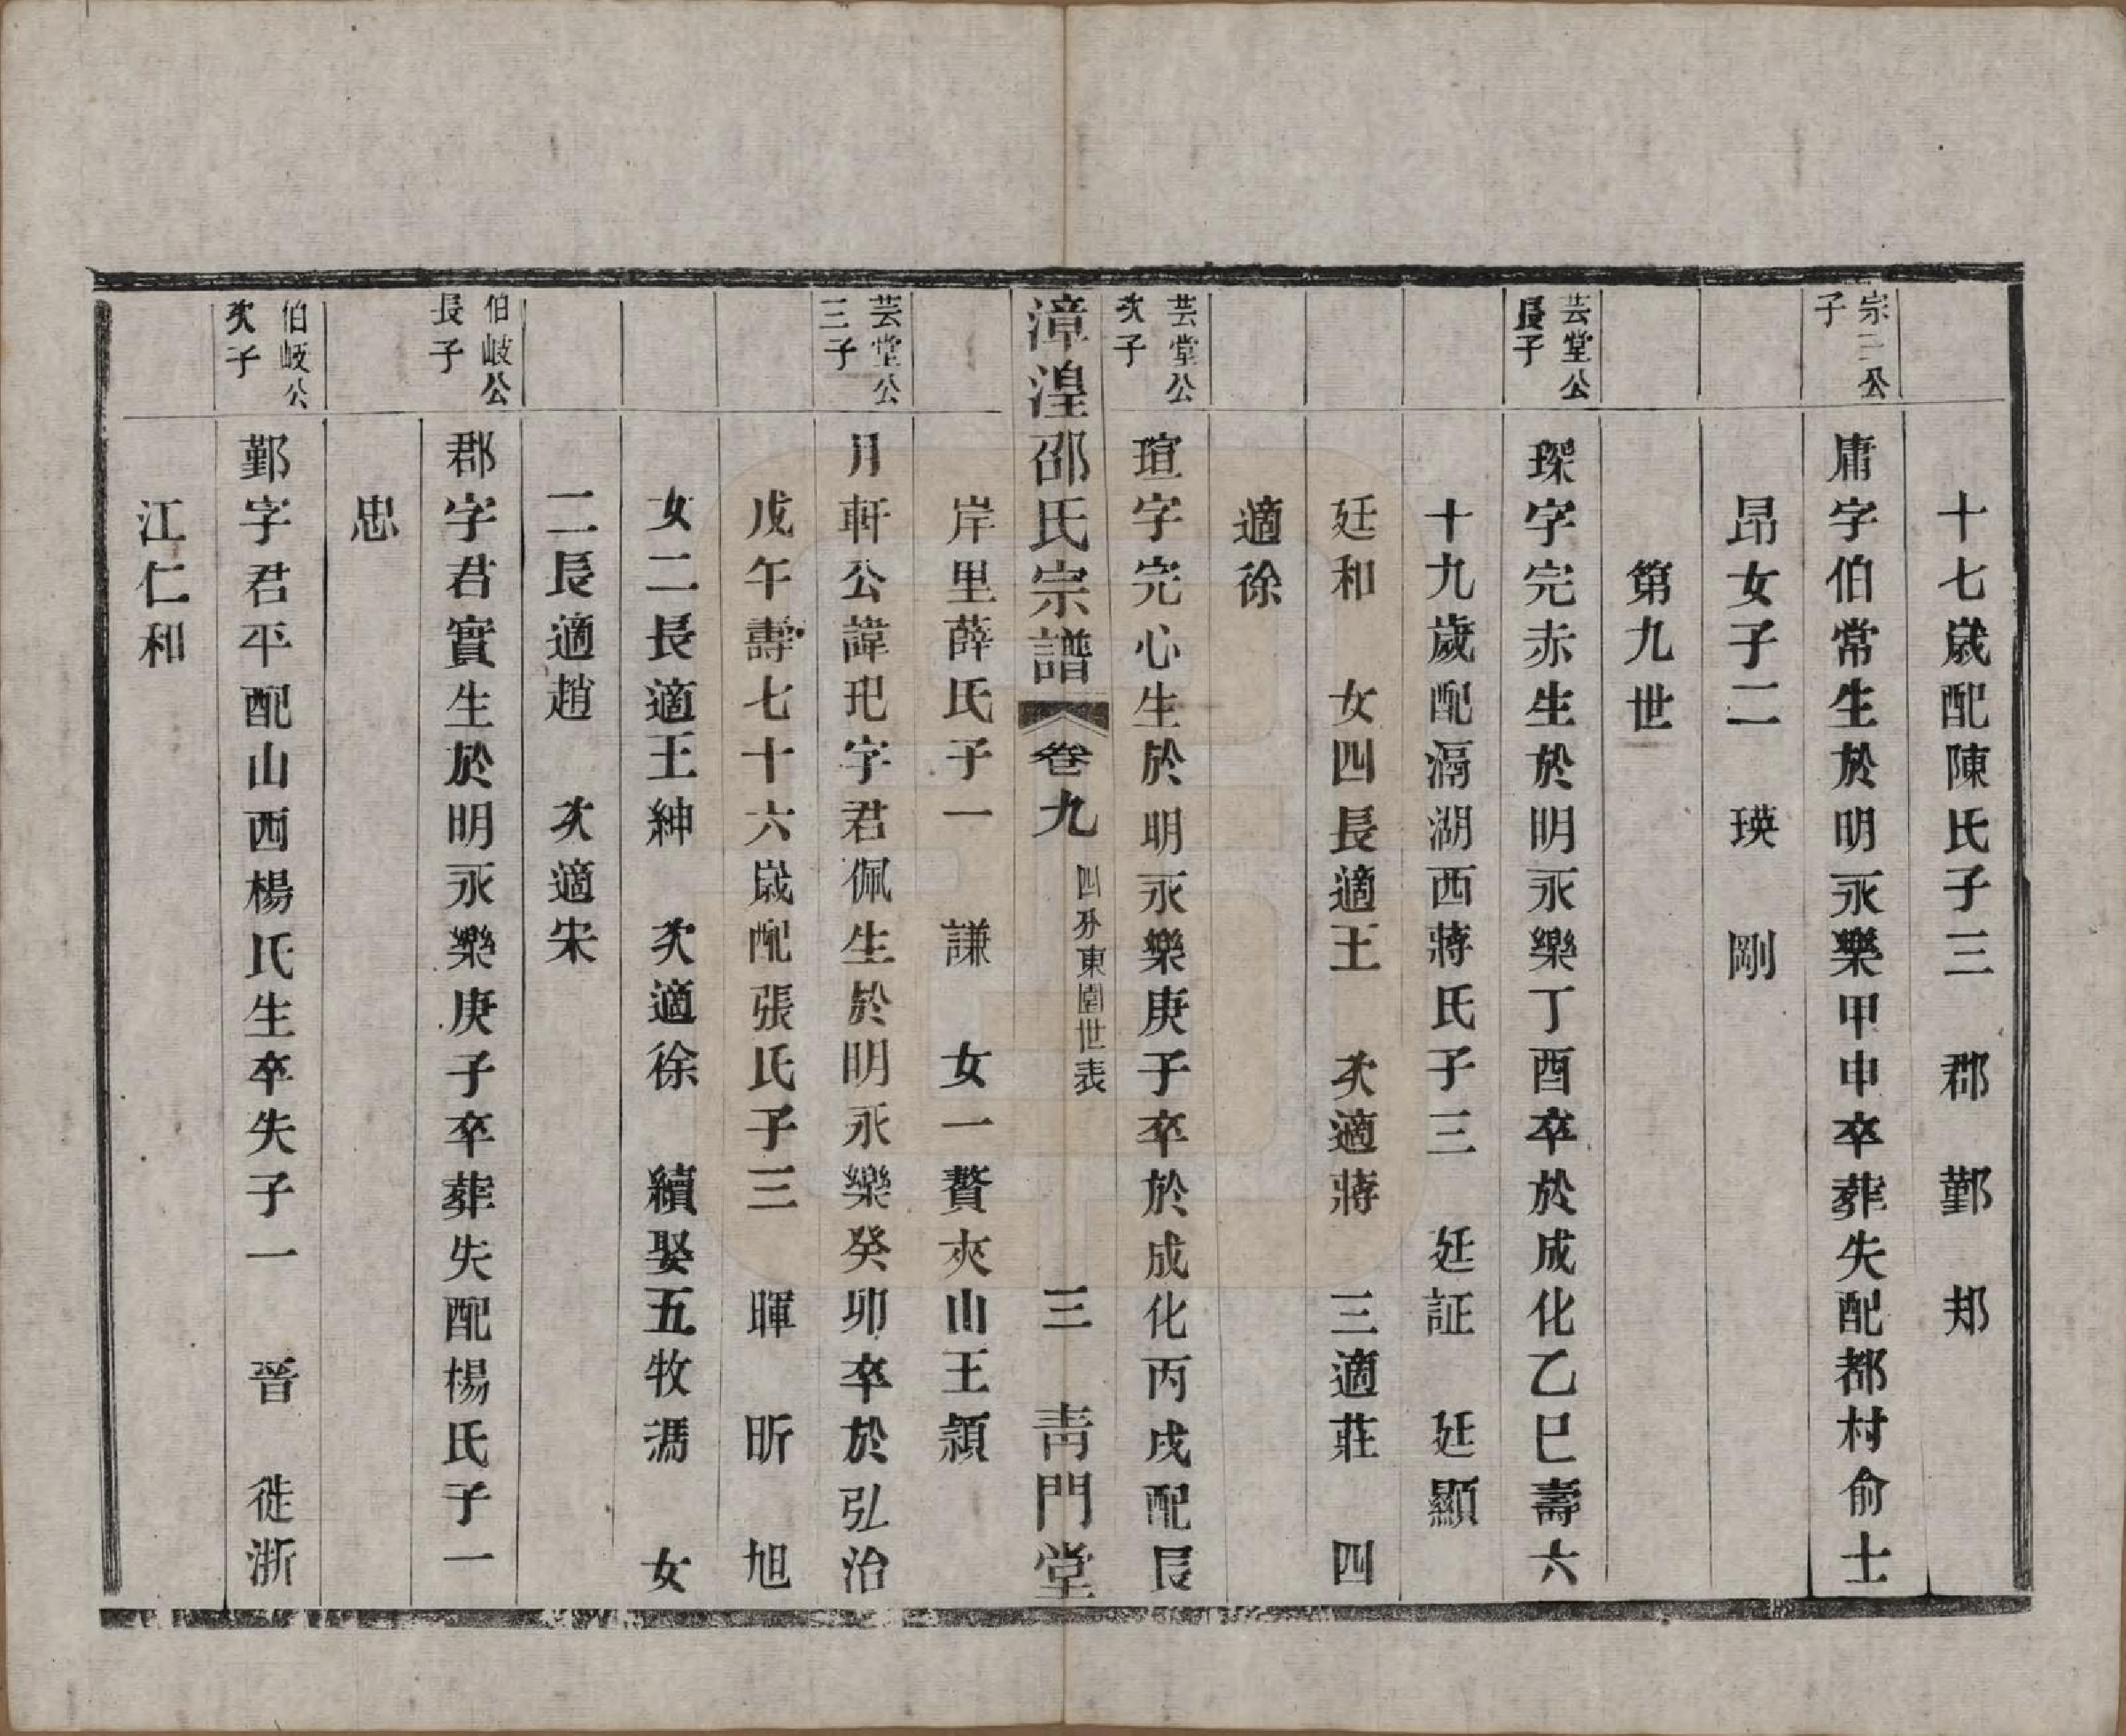 十七歲配陳氏子三　郡　鄞　邦
宗二公子
庸字伯常生於明永樂甲申卒葬失配都村俞士
昂女子二　瑛　剛
第九世
芸堂公長子
琛字完赤生於明永樂丁酉卒於成化乙巳壽六
十九歲配滆湖西蔣氏子三　廷証　廷顯
廷和　女四長適王　次適蔣　三適莊　四
適徐
芸堂公次子
瑄字完心生於明永樂庚子卒於成化丙戌配長
漳湟邵氏宗譜　卷九　四分東園世表　三　青門堂
岸里薛氏子一　謙　女一贅夾山王頴
芸堂公三子
月軒公諱玘字君佩生於明永樂癸卯卒於弘治
戊午壽七十六歲配張氏子三　暉　昕　旭
女二長適王紳　次適徐　續娶五牧馮　女
二長適趙　次適宋
伯岐公長子
郡字君實生於明永樂庚子卒葬失配楊氏子一
忠
伯岐公次子
鄞字君平配山西楊氏生卒失子一　晉　徙浙
江仁和